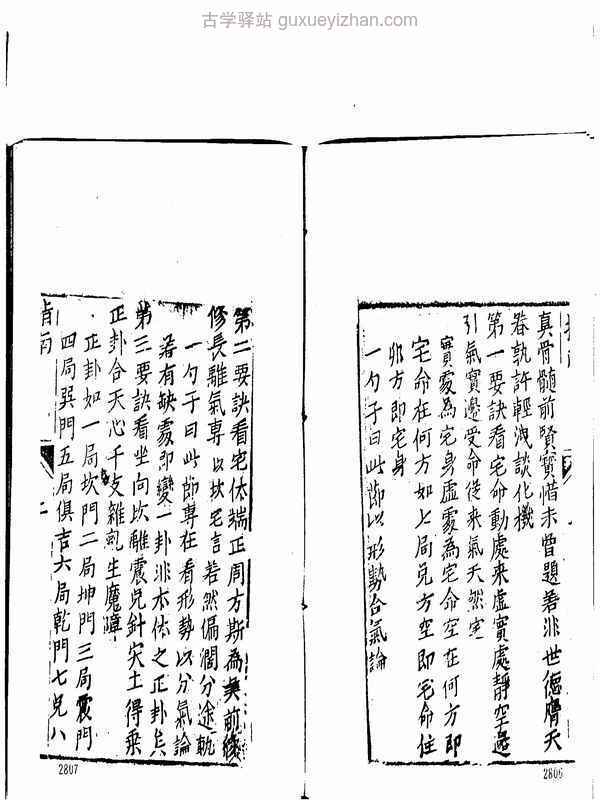 古学驿站 guxueyizhan.com
真骨髓前賢寳惜未曾題若非世德膺天
眷孰許輕洩談化機
第一要訣看宅命動處來虛實處靜空邊
引氣實邊受命從來氣天然定
實處為宅身虛處為宅命空在何方即
宅命在何方如上局兌方空即宅命住
北方即宅身
一勺子曰此節以形勢合氣論
2806
第二要訣看宅体端正周方斯為美前後
修長離氣專以坎宅言若然偏濶分途軌
一勺子曰此節專在看形勢以分氣論
若有缺處即變一卦非本体之正卦矣
第三要訣看坐向坎離震兌針灾土得乘
正卦合天心干支雜亂生魔障
正卦如一局坎門二局坤門三局震門
四局巽門五局俱吉六局乾門七兌八
指南
二
2807